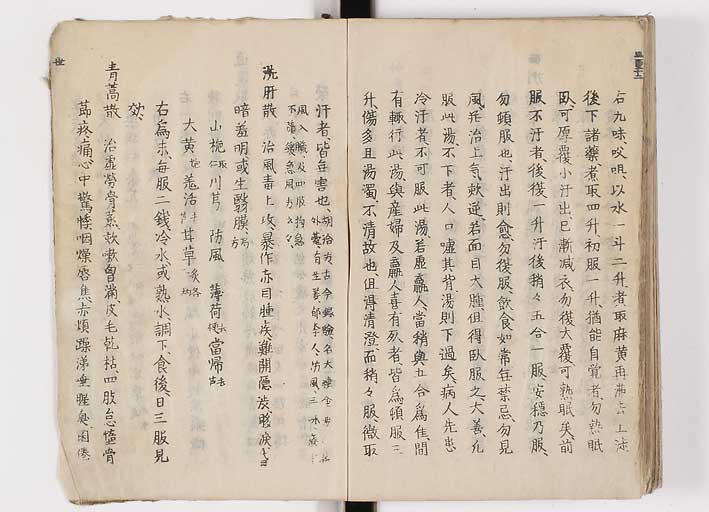 右九味㕮咀以水一斗二升煮取麻黄再沸去上沫
後下諸藥煮取四升初服一升猶能自覚者勿熟眠
臥可厚覆小汗出已漸減衣勿復大覆可熟眠矣前
服不汗者後復一升汗後稍々五合一服安穏乃服
勿頓服也汗出則愈勿復服飲食如常毎葉忌勿見
風并治上気欬逆若面目大腫但得臥服之大善凡
服此湯不下者人口嘘其背湯則下過矣病人先患
冷汗者不可服此湯若虚羸人當稍與五合為佳間
有輒行此湯與産婦及羸人喜有死者皆為頓服三
升傷多且湯濁不清故也但得清澄而稍々服微取
汗者皆毎害也
風入臓及四肢拘急
不帯緩急風方
洗肝散 治風毒上攻暴作赤目腫疾難開隠渋眵涙
暗羞明或生翳膜方
山梔仁 川芎 防風 薄荷 當帰
大黄 羗活 甘草
右為末毎服二銭冷水或熟水調下食後日三服見
效
青蒿散 治虚労骨蒸欬嗽胸満皮毛乾枯四肢怠惰骨
節疼痛心中驚悸咽燥唇焦赤煩躁涕垂腥臭困倦